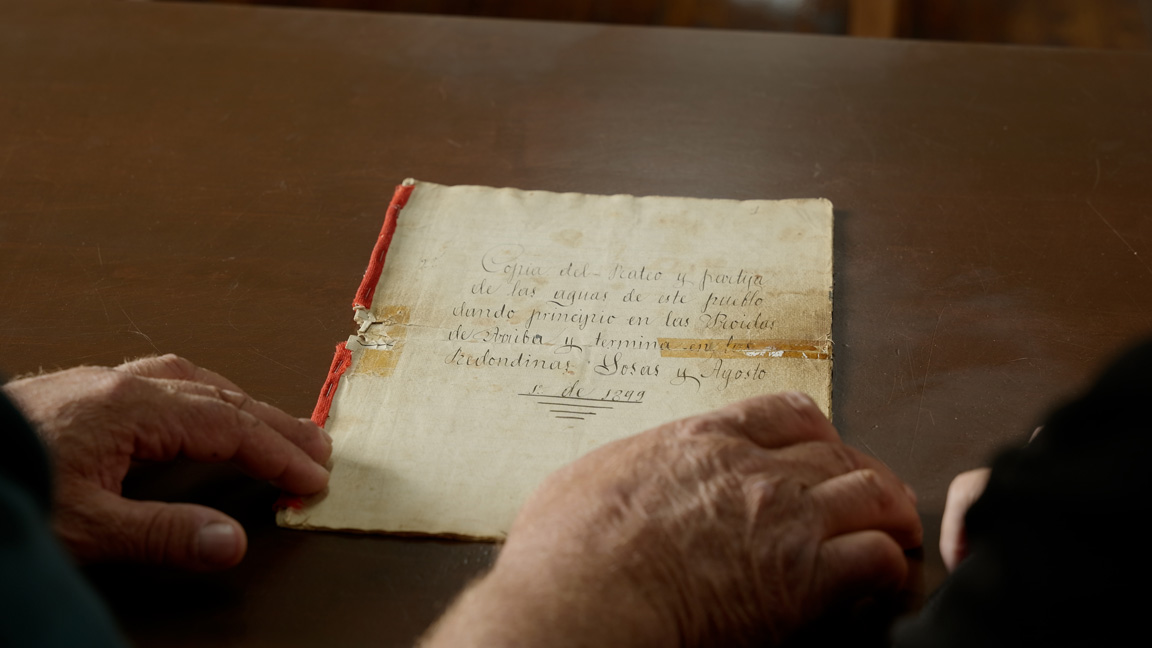 Copia del Rateo y partija
de las aguas de este pueblo
dando principio en las Roidas
de Arriba y termina en los
Redondinas Losas y Agosto
1º de 1899